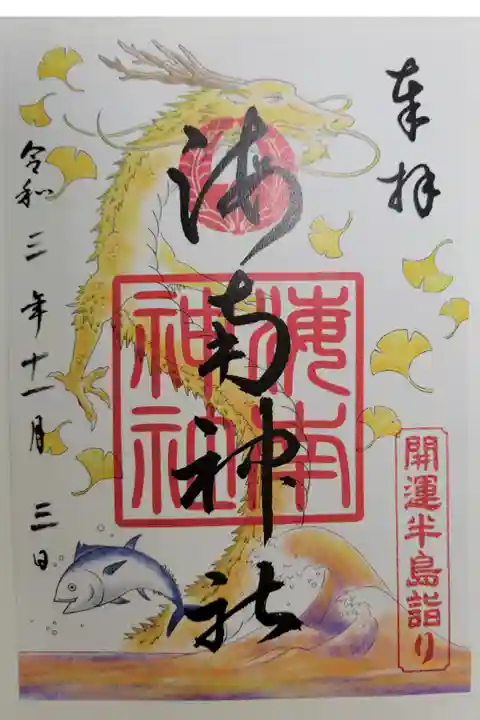 奉拝
海南神社
海南神社
開運半島詣り
令和三年十一月三日